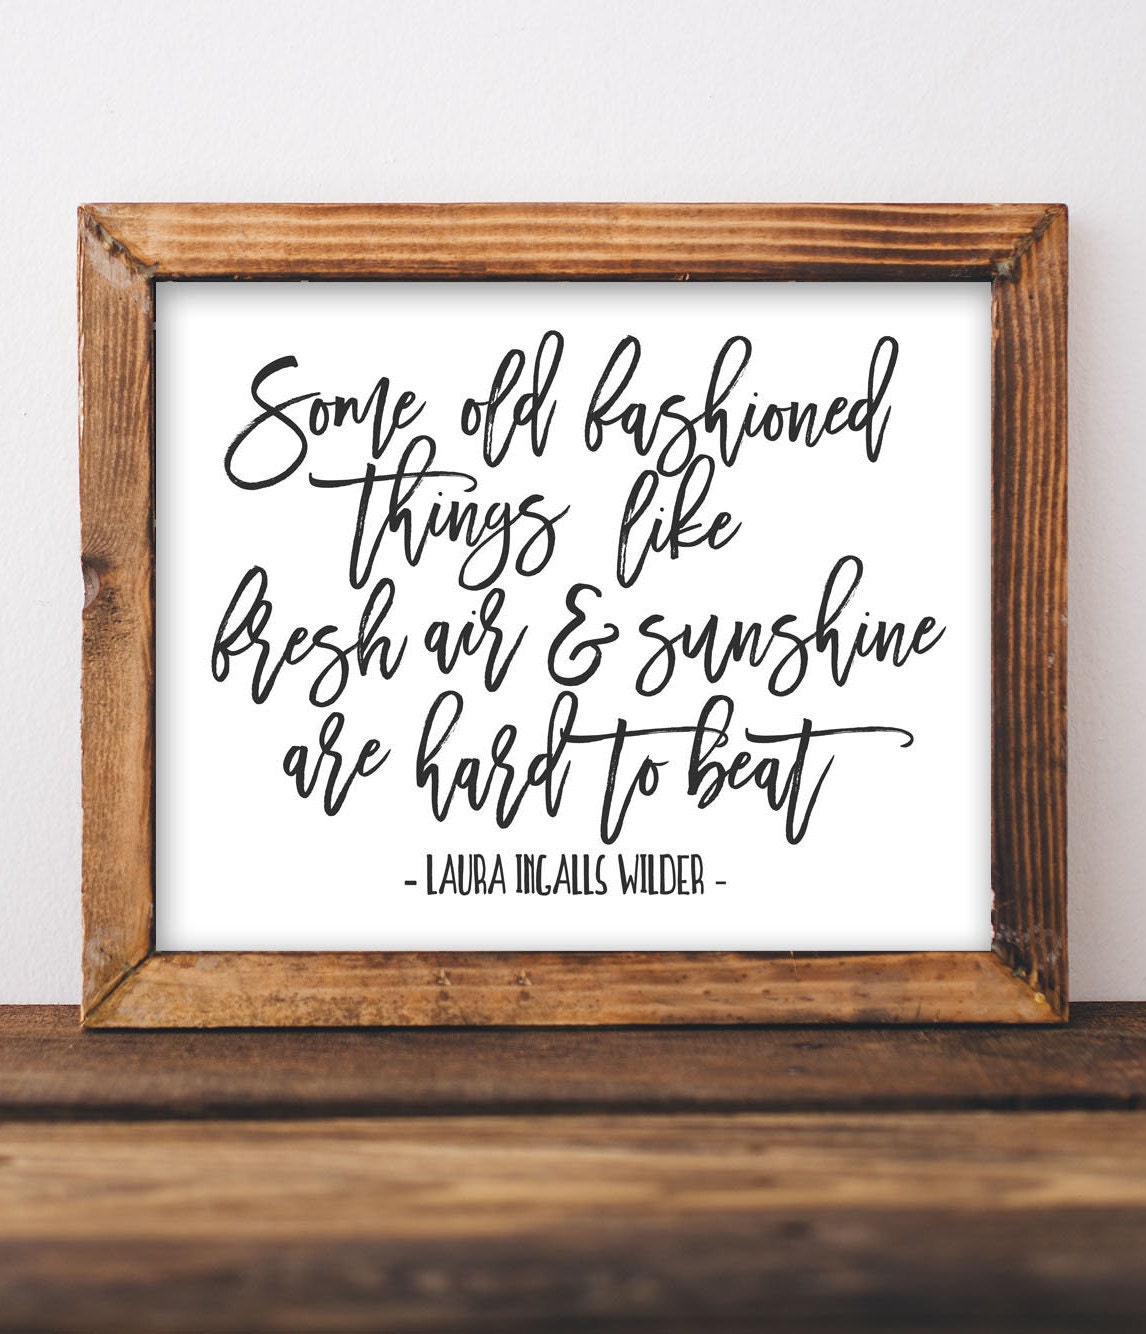 Some old fashioned
things like
fresh air & sunshine
are hard to beat
- LAURA INGALLS WILDER -